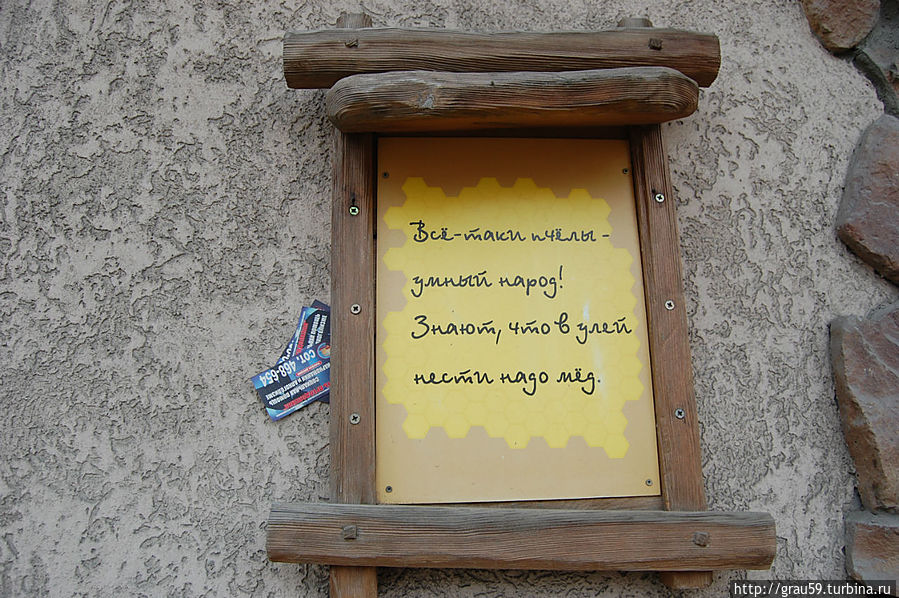 Всё-таки пчёлы -
умный народ!
Знают, что в улей
нести надо мёд.
СОТ. 468-654
http://grau59.turbina.ru